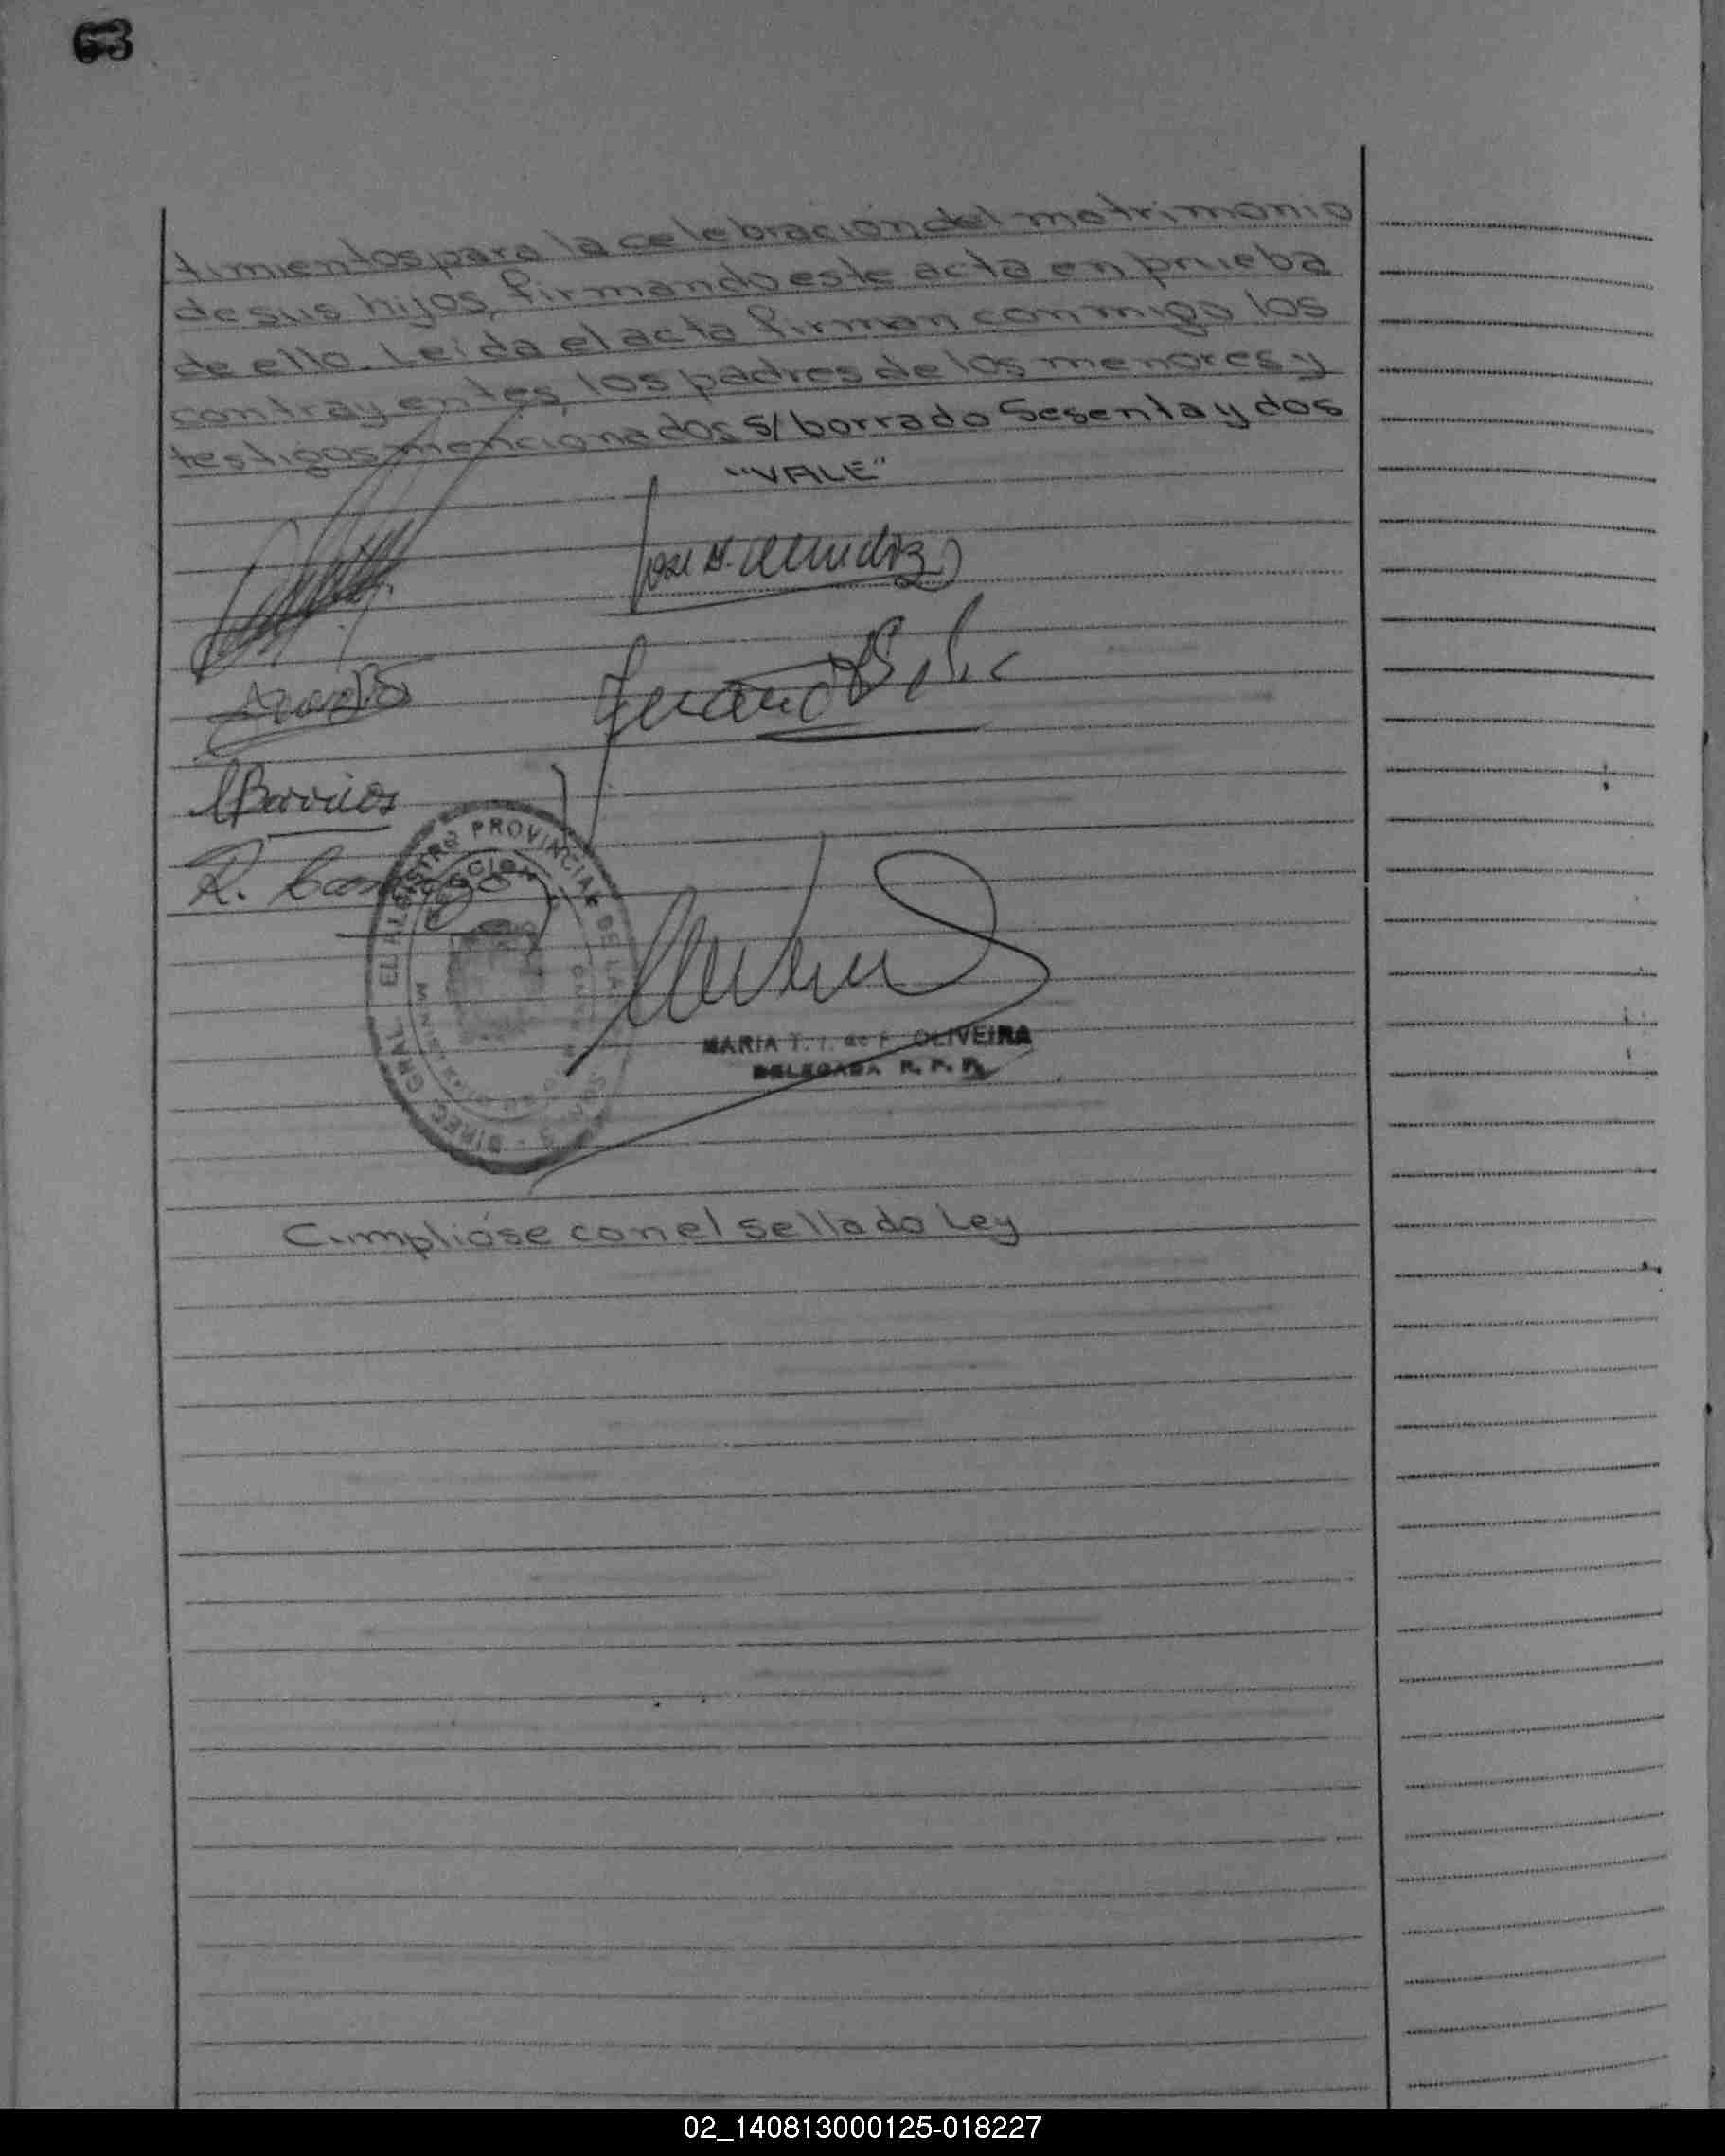 63
timientos para la celebración del matrimonio
de sus hijos, firmando este acta en prueba
de ello. Leída el acta firman conmigo los
contrayentes, los padres de los menores y
testigos mencionados s/ borrado Sesenta y dos
"VALE"
Barrios
R.
REGISTRO PROVINCIAL DE LAS
DIREC. GRAL.
MARIA T. I. de F. OLIVEIRA
DELEGADA R. P. P.
Cumplióse con el sellado Ley
02_140813000125-018227